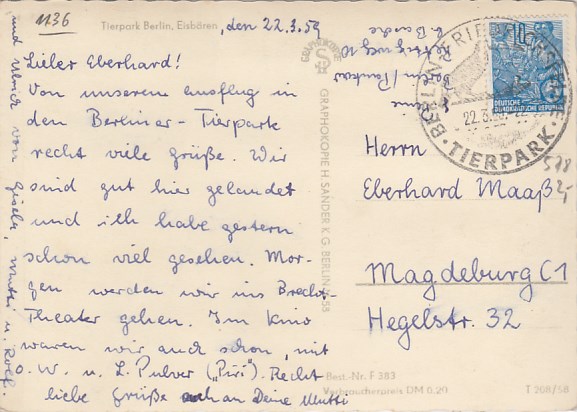 1136
Tierpark Berlin, Eisbären, den 22.3.59
Lieber Eberhard!
Von unserem Ausflug in
den Berliner-Tierpark
recht viele Grüße. Wir
sind gut hier gelandet
und ich habe gestern
schon viel gesehen. Mor-
gen werden wir ins Brecht-
Theater gehen. Im Kino
waren wir auch schon, mit
O. W. u. L. Pulver („Piri“). Recht
liebe Grüße auch an Deine Mutti
und Ulrich von Gisela, Mutti u. Rolf.
GRAPHOKOPIE
GRAPHOKOPIE H. SANDER K. G. BERLIN
Best.-Nr. F 383
Verbraucherpreis DM 0,20
T 208/58
Berlin/Pankow
BERLIN-FRIEDRICHSFELDE
22.3.
TIERPARK
10
DEUTSCHE
DEMOKRATISCHE REPUBLIK
Herrn
Eberhard Maaß
Magdeburg C1
Hegelstr. 32